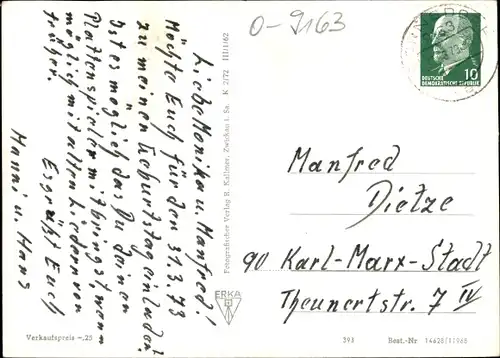 O-9163
Liebe Monika u. Manfred!
Möchte Euch für den 31.3.73
zu meinen Geburtstag einladen.
Ist es möglich das Du deinen
Plattenspieler mitbringst, wenn
möglich mit alten Liedern von
früher.
Es grüßt Euch
Hanni u. Hans
Verkaufspreis -,25
Fotografischer Verlag R. Kallmer, Zwickau i. Sa. K 2772 III/1/62
ERKA
DEUTSCHE
DEMOKRATISCHE REPUBLIK
10
Manfred
Dietze
90 Karl-Marx-Stadt
Theunertstr. 7 IV
393
Best.-Nr 14628(1)968